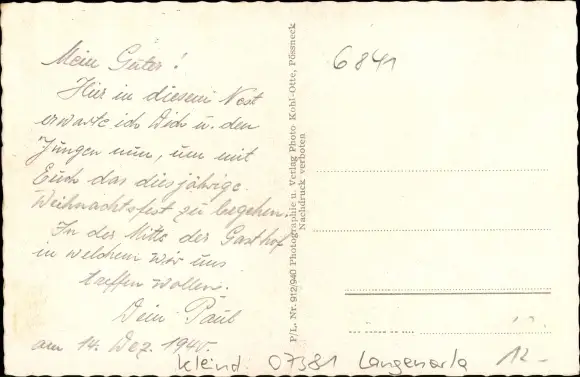 Mein Guter!
Hier in diesem Nest
erwarte ich Dich u. den
Jungen nun, um mit
Euch das diesjährige
Weihnachtsfest zu begehen.
In der Mitte der Gasthof
in welchem wir uns
treffen wollen.
Dein Paul
am 14. Dez. 1940.
P/L. Nr. 912/940 Photographie u. Verlag Photo Kohl-Otte, Pössneck
Nachdruck verboten
6841
Kleind. 07381 Langenorla 12.-